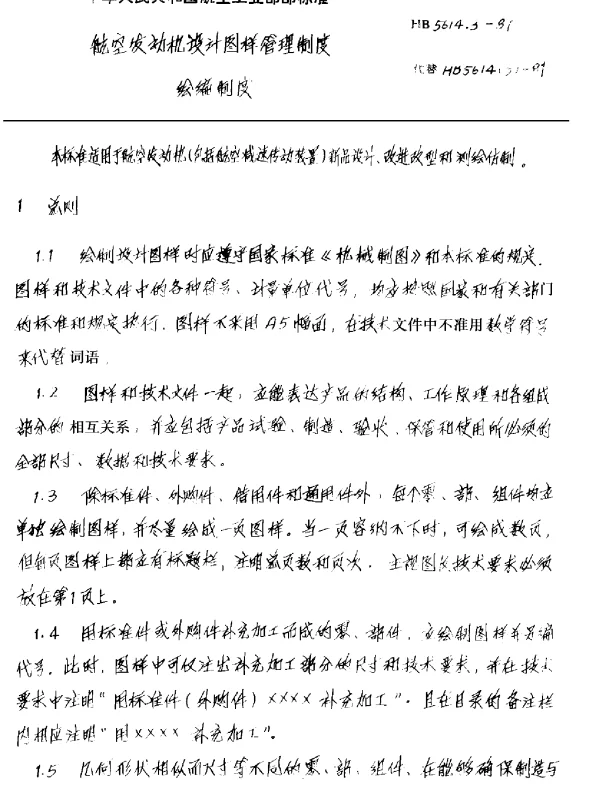 中华人民共和国航空工业部部标准
HB 5614.3-91
航空发动机设计图样管理制度
代替 HB5614
绘编制度
本标准适用于航空发动机(包括航空减速传动装置)新品设计、改进改型和测绘仿制。
1 总则
1.1 绘制设计图样时应遵守国家标准《机械制图》和本标准的规定.
图样和技术文件中的各种符号、计量单位代号,均应按照国家和有关部门
的标准和规定执行.图样不采用A5幅面,在技术文件中不准用数学符号
来代替词语.
1.2 图样和技术文件一起,应能表达产品的结构、工作原理和各组成
部分的相互关系,并应包括产品试验、制造、验收、保管和使用所必须的
全部尺寸、数据和技术要求。
1.3 除标准件、外购件、借用件和通用件外,每个零、部、组件均应
单独绘制图样,并尽量绘成一页图样。当一页容纳不下时,可绘成数页,
但每页图样上都应有标题栏,注明总页数和页次.主视图及技术要求必须
放在第1页上。
1.4 用标准件或外购件补充加工而成的零、部件,应绘制图样并另编
代号.此时,图样中可仅注出补充加工部分的尺寸和技术要求,并在技术
要求中注明"用标准件(外购件)××××补充加工".且在目录的备注栏
内相应注明"用××××补充加工"。
1.5 几何形状相似而尺寸等不同的零、部、组件、在能够确保制造与